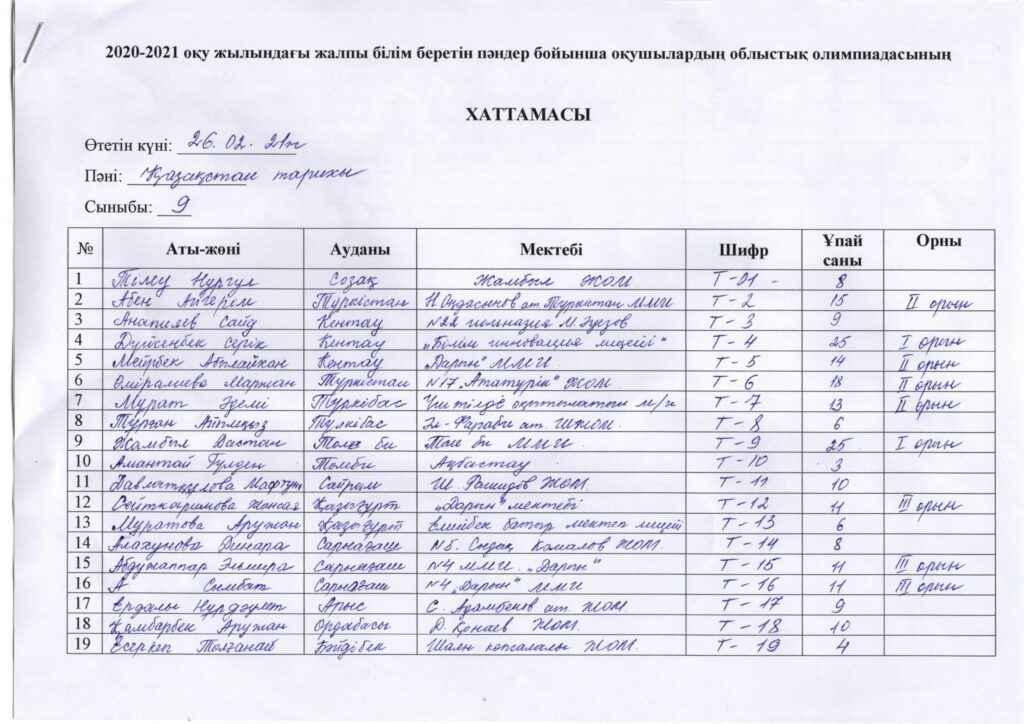 2020-2021 оқу жылындағы жалпы білім беретін пәндер бойынша оқушылардың облыстық олимпиадасының
ХАТТАМАСЫ
Өтетін күні: 26.02.21ж
Пәні: Қазақстан тарихы
Сыныбы: 9
№ Аты-жөні Ауданы Мектебі Шифр Ұпай саны Орны
1 Тілеу Нұргүл Созақ Жамбыл ЖОМ Т-01 - 8
2 Абен Айгерім Түркістан Н Оңдасынов ат Туркистан ММИ Т-2 15 II орын
3 Анапияев Сайд Кентау №22 гимназия М Әуезов Т-3 9
4 Дүйсенбек Серік Кентау „Білім инновация лицейі" Т-4 25 I орын
5 Мейрбек Абылайхан Кентау „Дарын" ММИ Т-5 14 II орын
6 Өміралиева Маржан Түркістан №17 „Ататүрік" ЖОМ. Т-6 18 II орын
7 Мұрат Әделі Түлкібас Үш тілде оқытылатын м/и Т-7 13 II орын
8 Тұрған Түлкібас Әл-Фараби ат. ШЖОМ. Т-8 6
9 Жамбыл Дастан Төле би Төле би ММИ. Т-9 25 I орын
10 Амантай Гүлден Ақбастау Т-10 3
11 Сайрам Ш. Рашидов ЖОМ. Т-11 10
12 Сейткаримова Жансая Қазығұрт „Дарын" мектебі Т-12 11 III орын
13 Муратова Аружан Қазығұрт батыр мектеп лицей Т-13 6
14 Алахунова Динара Сарыағаш №5. Сыдық Камалов ЖОМ. Т-14 8
15 Абдужаппар Эльмира Сарыағаш №4 ММИ. „Дарын" Т-15 11 III орын
16 А Сымбат Сарыағаш №4 „Дарын" ММИ Т-16 11 III орын
17 Ердалы Нұрдәулет Арыс С. Адамбеков ат. ЖОМ Т-17 9
18 Қамбарбек Аружан Ордабасы Д. Қонаев ЖОМ. Т-18 10
19 Есеркеп Толғанай Бәйдібек Шаян ЖОМ. Т-19 4